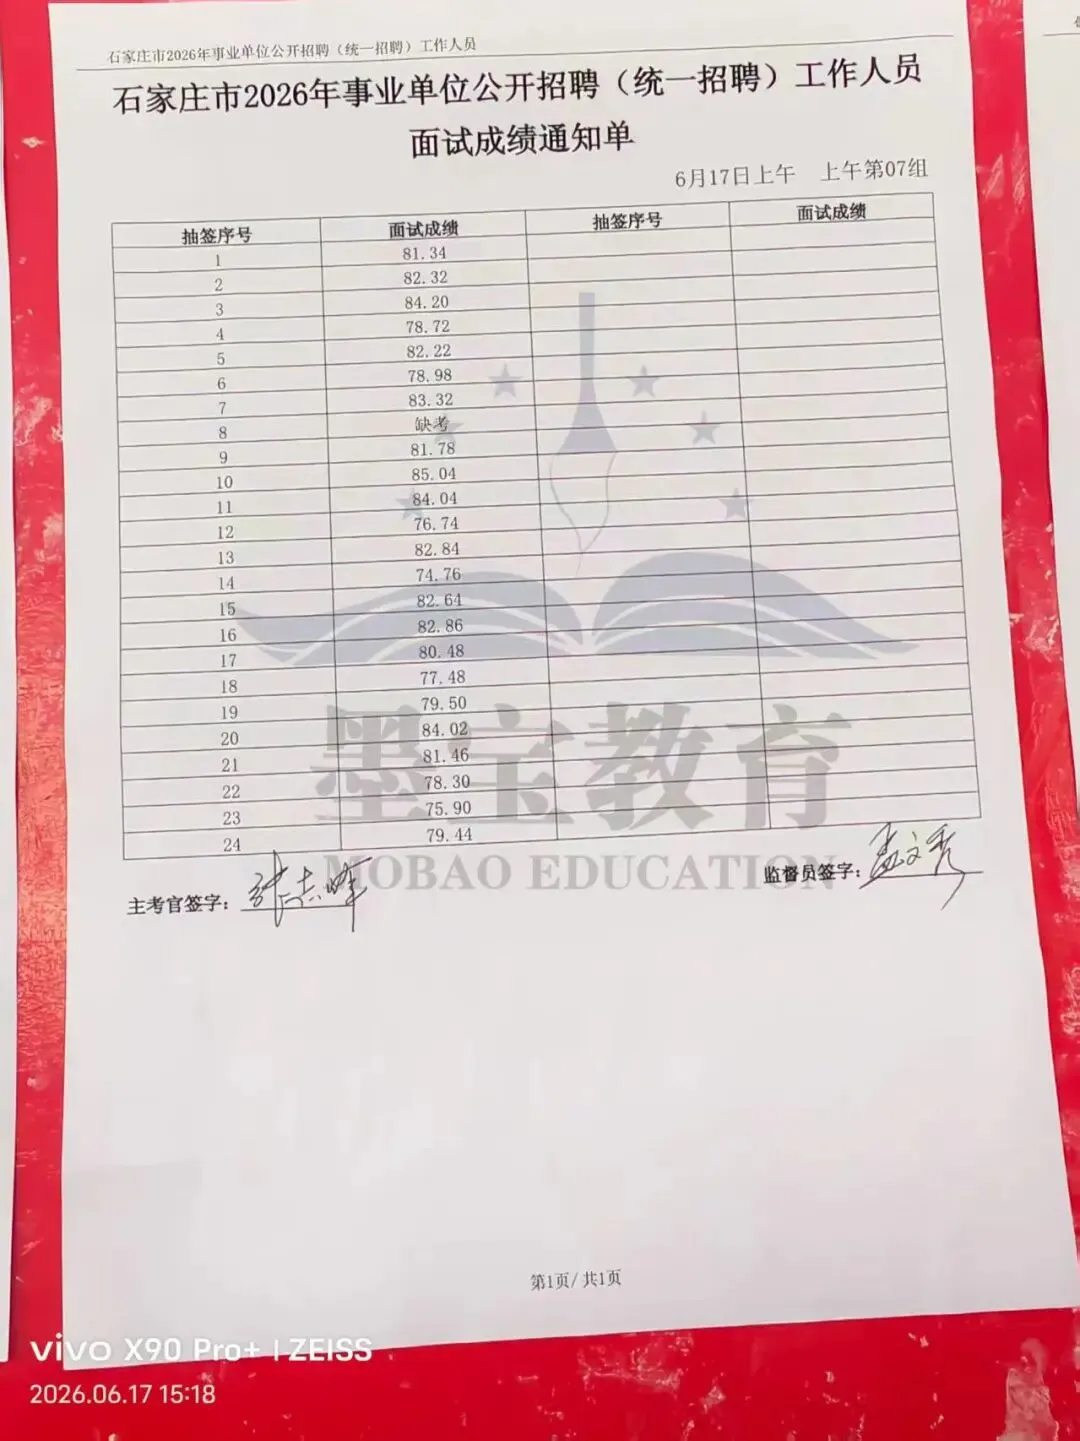 石家庄市2026年事业单位公开招聘（统一招聘）工作人员
石家庄市2026年事业单位公开招聘（统一招聘）工作人员
面试成绩通知单
6月17日上午 上午第07组
抽签序号 面试成绩 抽签序号 面试成绩
1 81.34
2 82.32
3 84.20
4 78.72
5 82.22
6 78.98
7 83.32
8 缺考
9 81.78
10 85.04
11 84.04
12 76.74
13 82.84
14 74.76
15 82.64
16 82.86
17 80.48
18 77.48
19 79.50
20 84.02
21 81.46
22 78.30
23 75.90
24 79.44
墨宝教育
MOBAO EDUCATION
主考官签字： 监督员签字：
第1页/共1页
vivo X90 Pro+ | ZEISS
2026.06.17 15:18